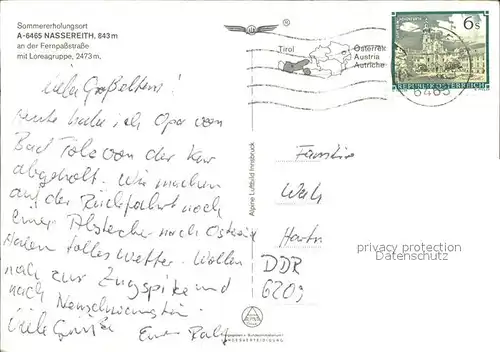 Sommererholungsort
A-6465 NASSEREITH, 843 m
an der Fernpaßstraße
mit Loreagruppe, 2473 m.
®
Tirol
Österreich
Austria
Autriche
6 S
REPUBLIK ÖSTERREICH
6465
Liebe Großeltern!
Heute habe ich Opa von
Bad Tölz von der Kur
abgeholt. Wir machen
auf der Rückfahrt noch
einen Abstecher nach Österreich
Haben tolles Wetter. Wollen
noch zur Zugspitze und
nach Neuschwanstein.
Viele Grüße Euer Ralf
Alpine Luftbild Innsbruck
Familie
DDR
6203
privacy protection
Datenschutz
LANDESVERTEIDIGUNG